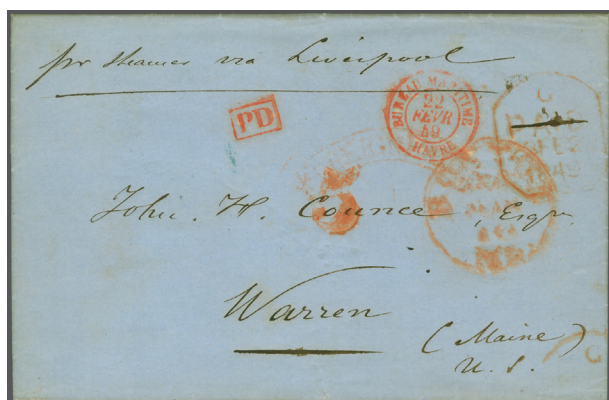 pr steamer via Liverpool
PD
BUREAU MARITIME
22
FEVR
49
HAVRE
5
John. H. Counce, Esqre
Warren
(Maine)
U. S.